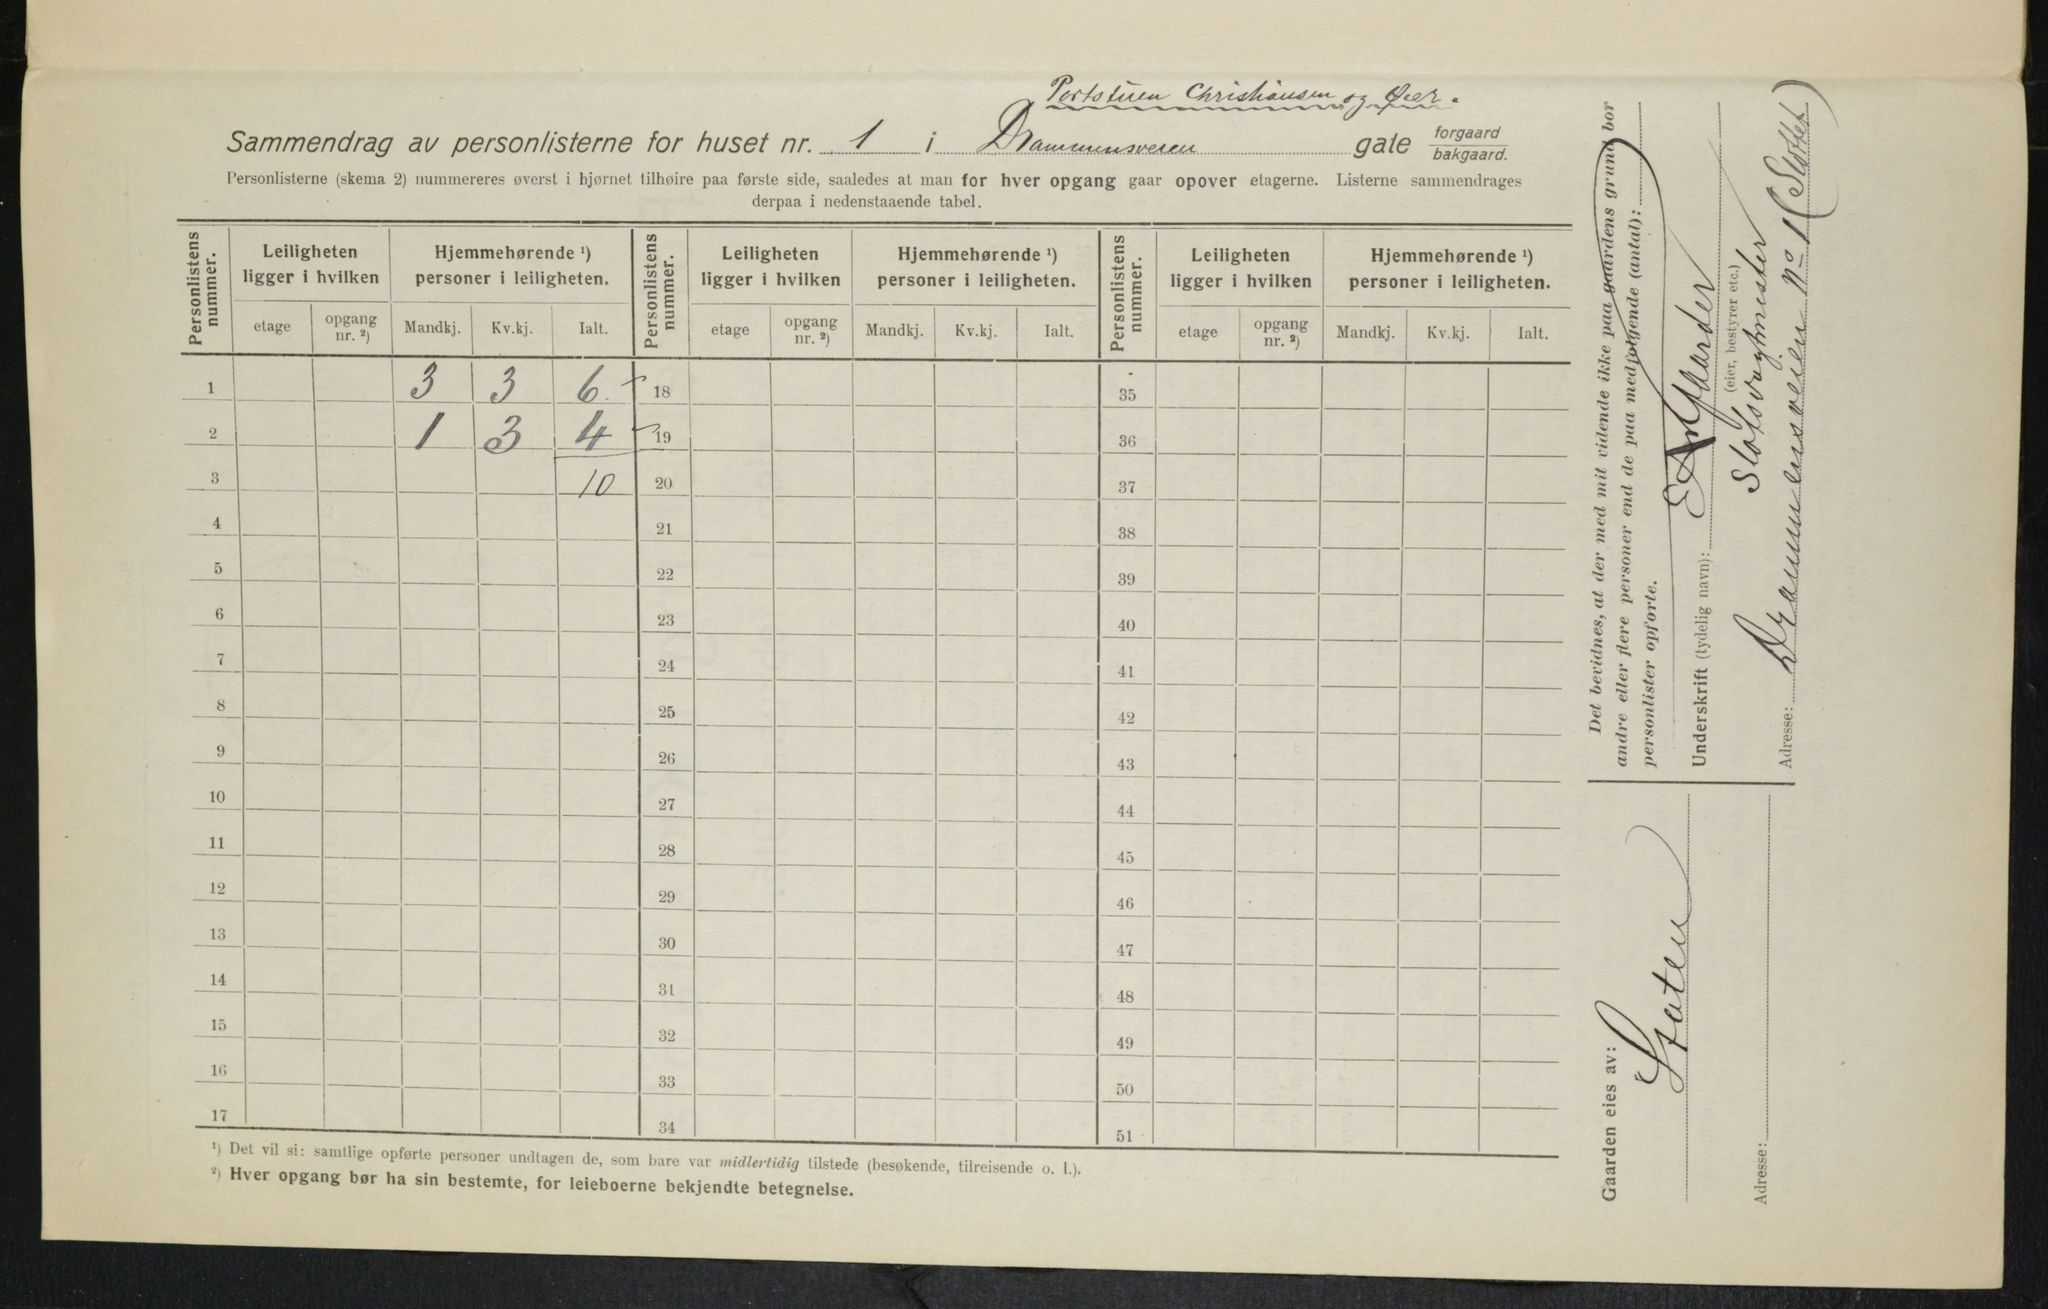 Portstuen Christiansen og Øier.
Sammendrag av personlisterne for huset nr. 1 i Drammensveien gate forgaard
bakgaard.
Personlisterne (skema 2) nummereres øverst i hjørnet tilhøire paa første side, saaledes at man for hver opgang gaar opover etagerne. Listerne sammendrages
derpaa i nedenstaaende tabel.
Personlistens nummer. Leiligheten ligger i hvilken Hjemmehørende ¹) personer i leiligheten. Personlistens nummer. Leiligheten ligger i hvilken Hjemmehørende ¹) personer i leiligheten. Personlistens nummer. Leiligheten ligger i hvilken Hjemmehørende ¹) personer i leiligheten.
etage opgang nr. ²) Mandkj. Kv.kj. Ialt. etage opgang nr. ²) Mandkj. Kv.kj. Ialt. etage opgang nr. ²) Mandkj. Kv.kj. Ialt.
1 3 3 6 18 35
2 1 3 4 19 36
3 10 20 37
4 21 38
5 22 39
6 23 40
7 24 41
8 25 42
9 26 43
10 27 44
11 28 45
12 29 46
13 30 47
14 31 48
15 32 49
16 33 50
17 34 51
¹) Det vil si: samtlige opførte personer undtagen de, som bare var midlertidig tilstede (besøkende, tilreisende o. l.).
²) Hver opgang bør ha sin bestemte, for leieboerne bekjendte betegnelse.
Det bevidnes, at der med mit vidende ikke paa gaardens grund bor
andre eller flere personer end de paa medfølgende (antal):
personlister opførte.
Underskrift (tydelig navn): Gaarder
(eier, bestyrer etc.)
Slotsvagtmester
Adresse: Drammensveien No 1 (Slottet)
Gaarden eies av:
Staten
Adresse: